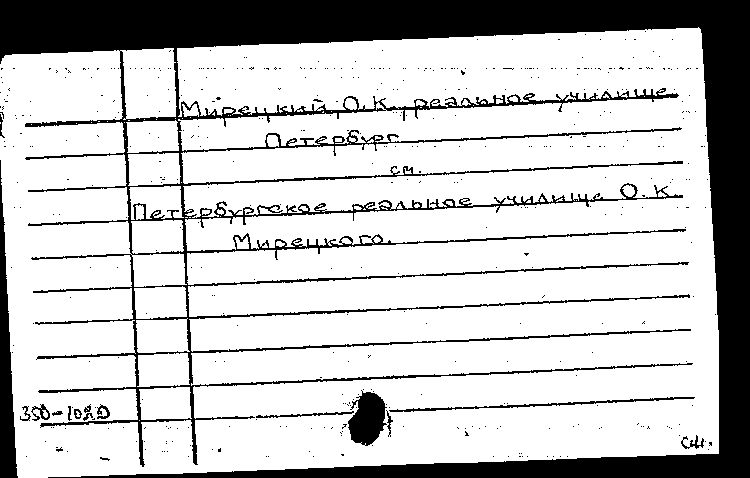 Мирецкий, О.К., реальное училище.
Петербург
см.
Петербургское реальное училище О.К.
Мирецкого.
350-102D